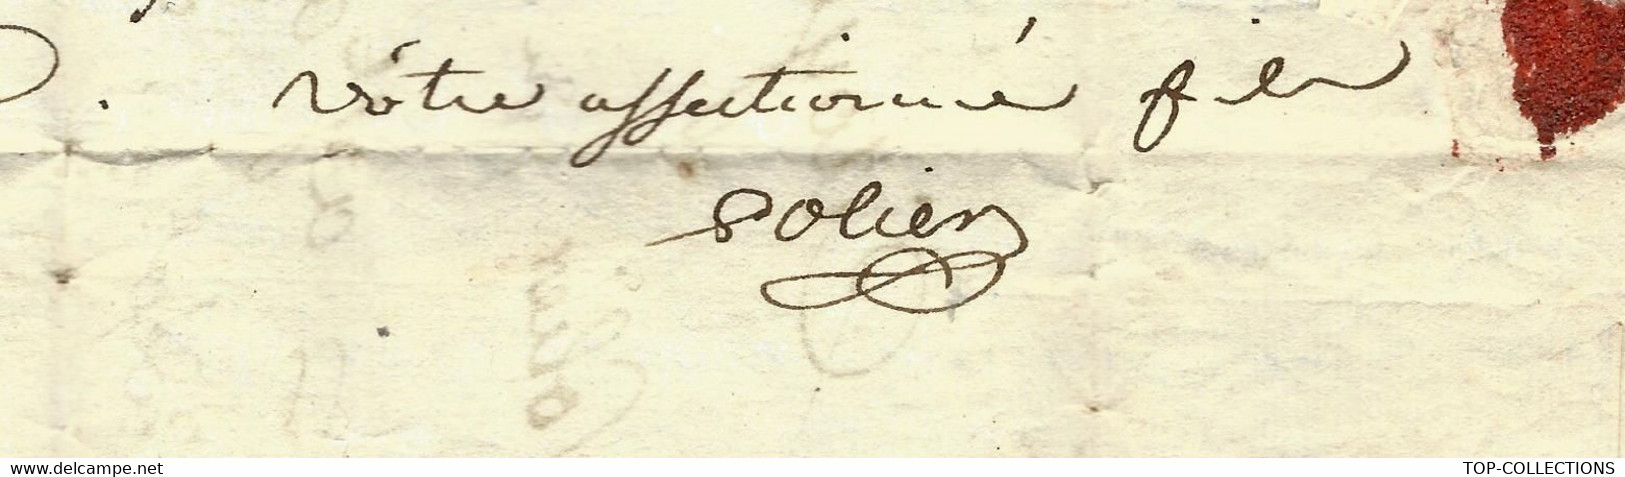 . vôtre affectionné fils
solier
www.delcampe.net
TOP-COLLECTIONS